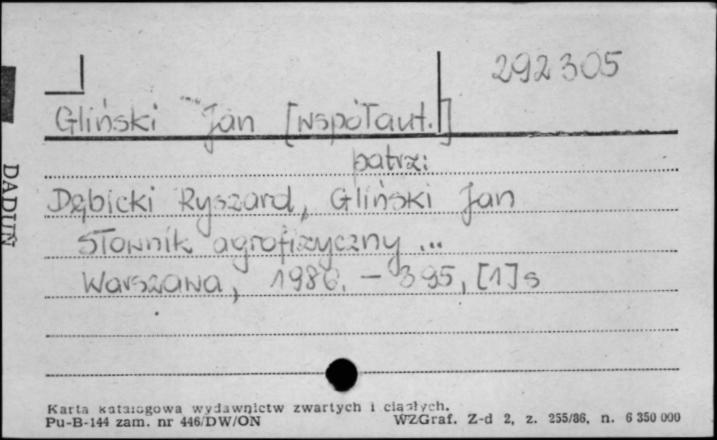 292305
Gliński Jan [współaut.]
patrz:
Dębicki Ryszard, Gliński Jan
Słownik agrofizyczny ...
Warszawa, 1986. – 395, [1] s
DADUŃ
Karta katalogowa wydawnictw zwartych i ciągłych.
Pu-B-144 zam. nr 446/DW/ON WZGraf. Z-d 2, z. 255/86, n. 6 350 000